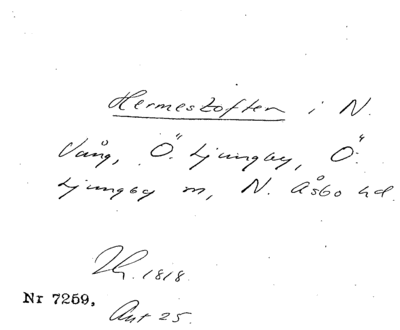 Hermestoften i N.
Vång, Ö. Ljungby, Ö.
Ljungby sn, N. Åsbo hd.
1818.
Nr 7259,
Ant 25.